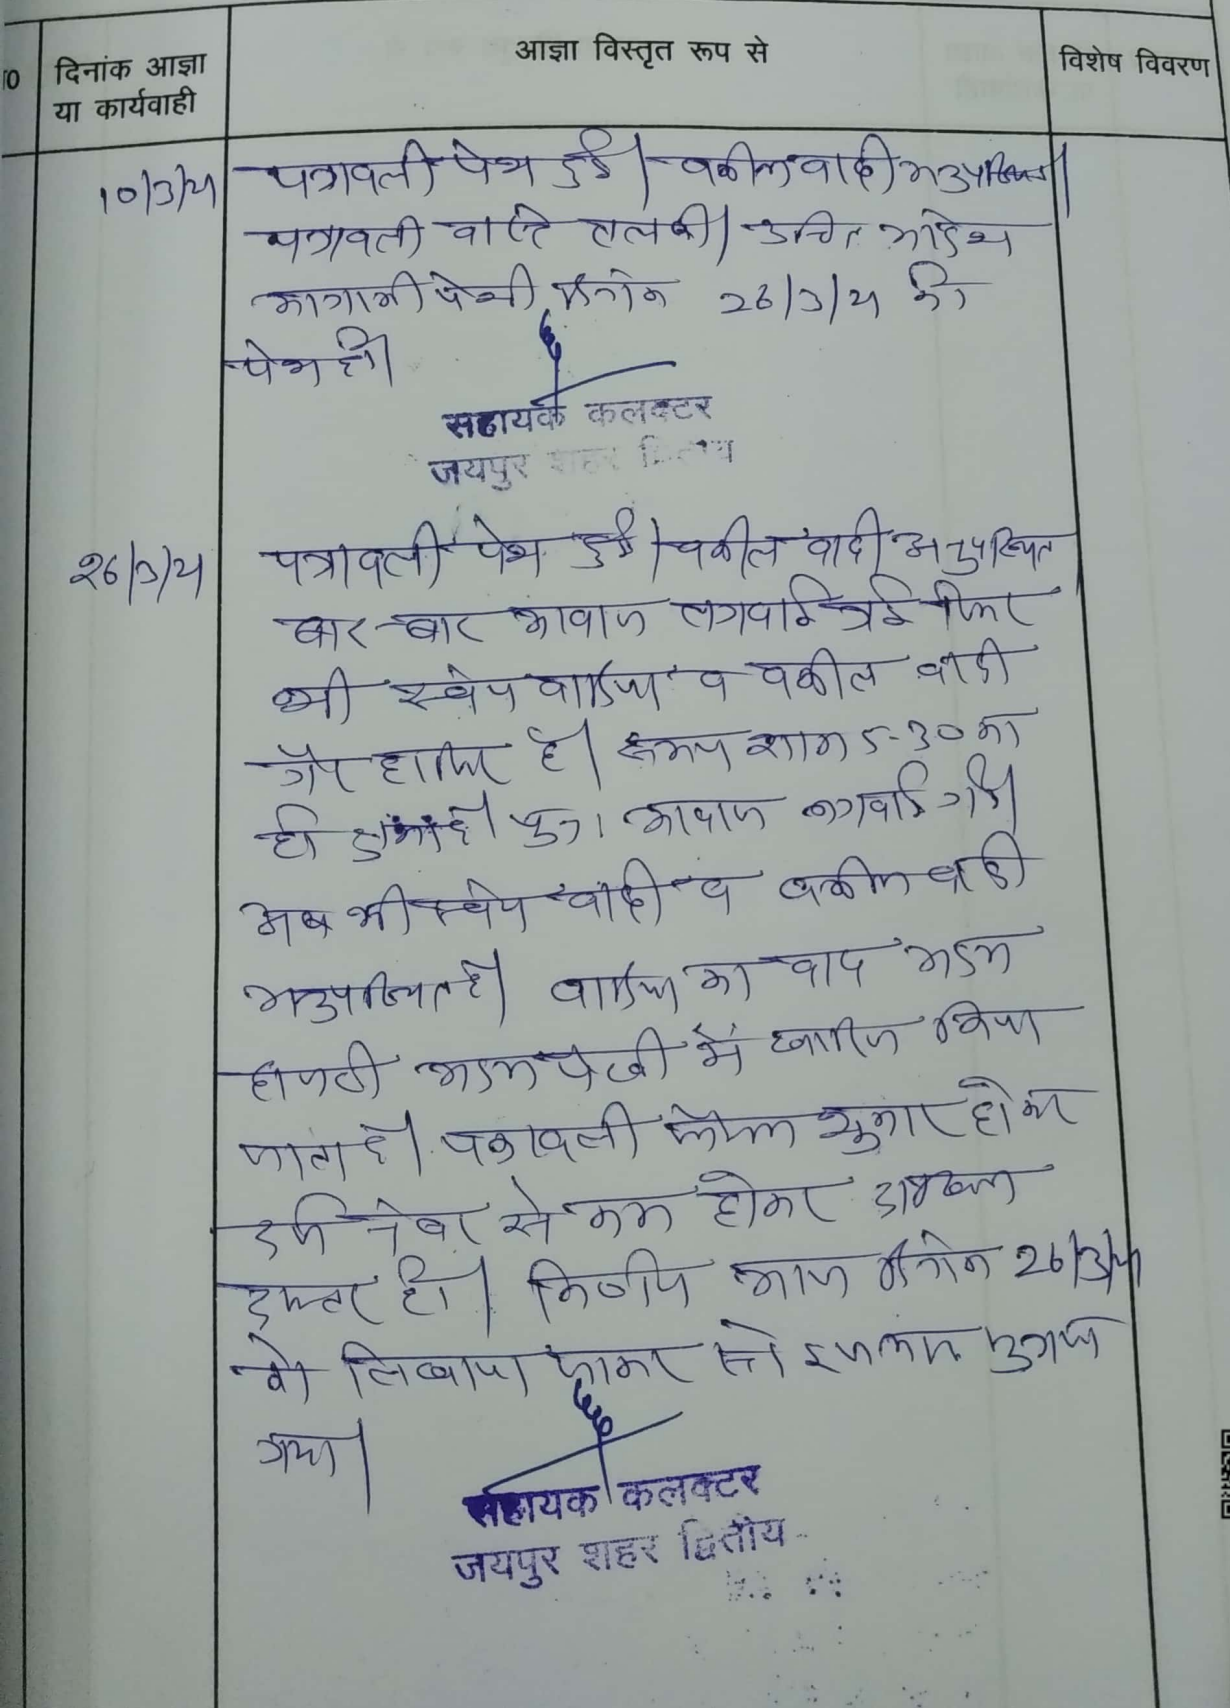 दिनांक आज्ञा
या कार्यवाही
आज्ञा विस्तृत रूप से
विशेष विवरण
10/3/21 पत्रावली पेश हुई। वकील वादी अनुपस्थित।
पत्रावली वास्ते तलबी। उचित आदेश
आगामी पेशी दिनांक 26/3/21 को
पेश हो।
सहायक कलक्टर
जयपुर शहर द्वितीय
26/3/21 पत्रावली पेश हुई। वकील वादी अनुपस्थित
बार-बार आवाज लगवाई गई फिर
भी स्वंय वादिया व वकील वादी
गैर हाजिर है। समय शाम 5-30 का
हो पुनः आवाज लगवाई गई।
अब भी स्वंय वादी व वकील वादी
अनुपस्थित है। वादिया का वाद अदम
हाजरी अदम पैरवी में खारिज किया
जाता है। पत्रावली फैसल शुमार होकर
दर्ज नंबर से कम होकर दाखिल
दफ्तर हो। निर्णय आज दिनांक 26/3/21
को लिखाया जाकर सरे इजलास सुनाया
गया।
सहायक कलक्टर
जयपुर शहर द्वितीय